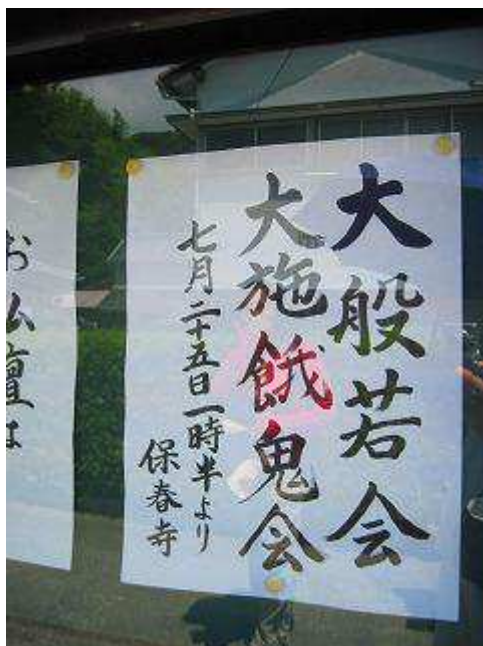 大般若会
大施餓鬼会
七月二十五日一時半より
保春寺
お仏壇は